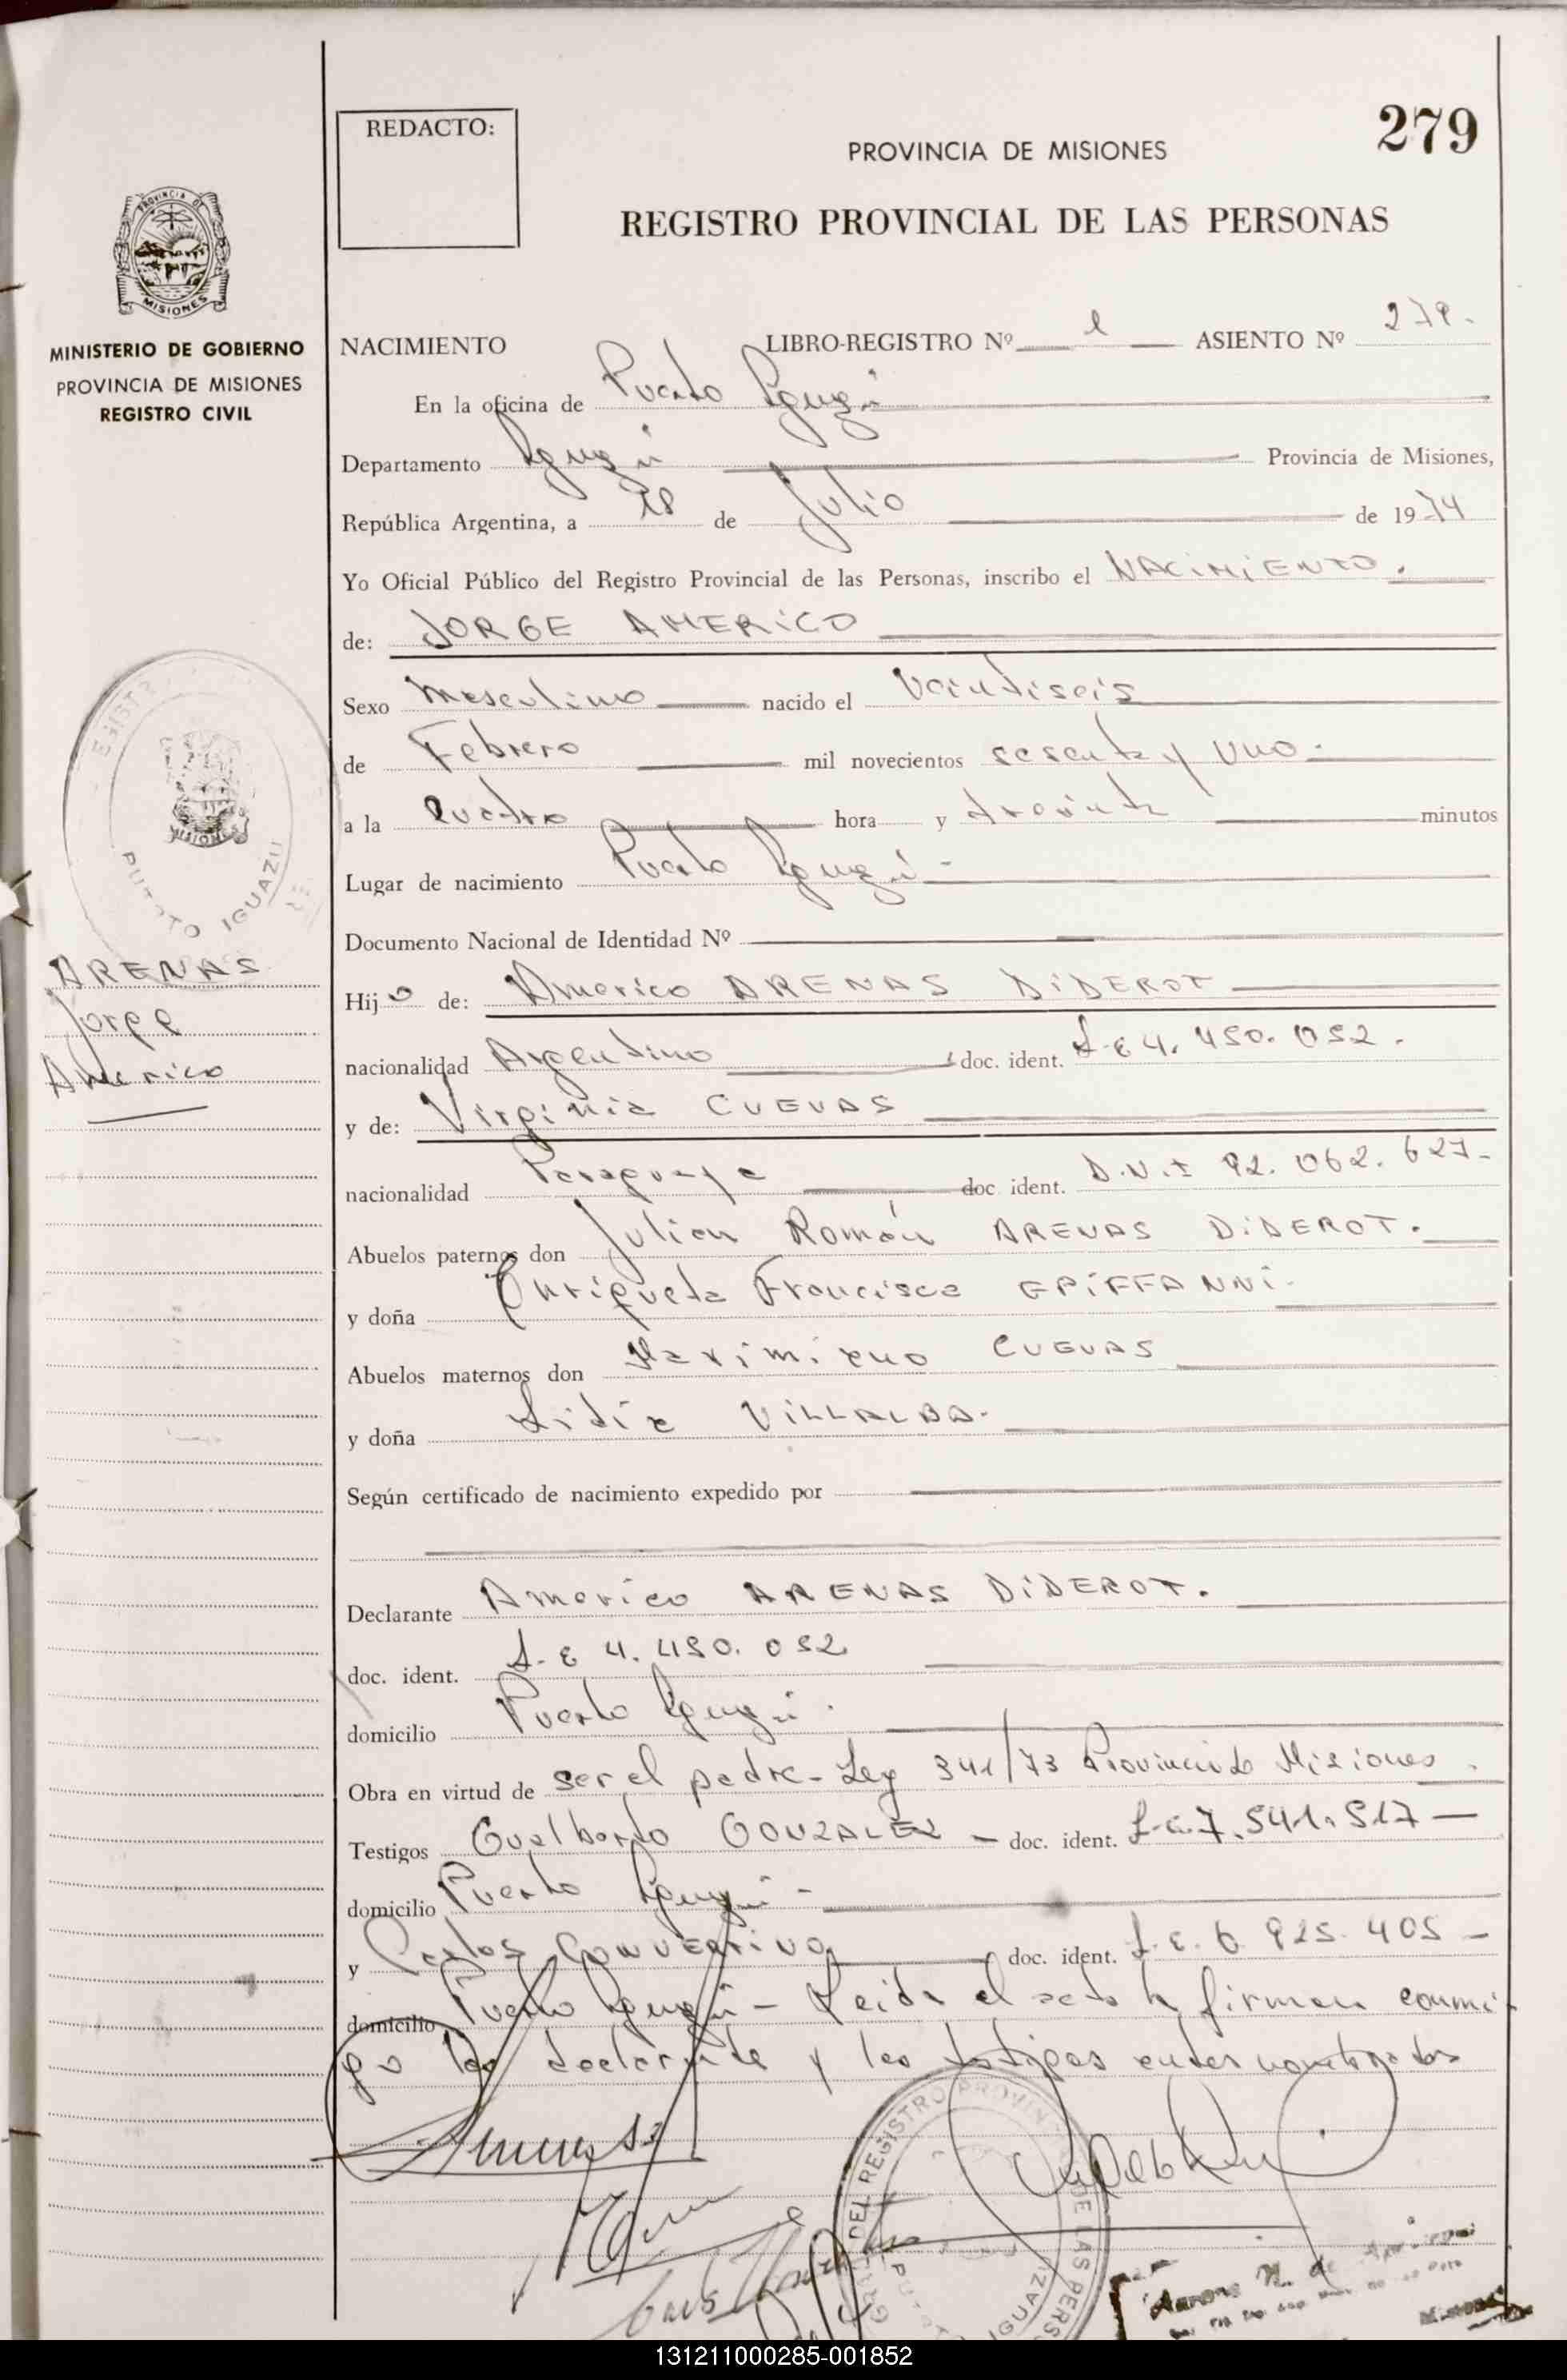 279
REDACTO:
PROVINCIA DE MISIONES
REGISTRO PROVINCIAL DE LAS PERSONAS
PROVINCIA DE
MISIONES
MINISTERIO DE GOBIERNO
PROVINCIA DE MISIONES
REGISTRO CIVIL
NACIMIENTO LIBRO-REGISTRO Nº 1 ASIENTO Nº 279.
En la oficina de Puerto Iguazú
Departamento Iguazú Provincia de Misiones,
República Argentina, a 28 de Julio de 1974
Yo Oficial Público del Registro Provincial de las Personas, inscribo el NACIMIENTO.
de: JORGE AMERICO
Sexo Masculino nacido el Veintiseis
de Febrero mil novecientos sesenta y uno.
a la cuatro hora y treinta minutos
Lugar de nacimiento Puerto Iguazú -
MISIONES
PUERTO IGUAZU
Documento Nacional de Identidad Nº
ARENAS
Jorge
Americo
Hijo de: Americo ARENAS DIDEROT
nacionalidad Argentino doc. ident. L.E 4. 450. 052.
y de: Virginia CUEVAS
nacionalidad Paraguaya doc ident. D.N.I 92. 062. 627-
Abuelos paternos don Julian Román ARENAS DIDEROT.
y doña Enriqueta Francisca EPIFFANNI-
Abuelos maternos don Maximiano CUEVAS
y doña Lidia VILLALBA-
Según certificado de nacimiento expedido por
Declarante Americo ARENAS DIDEROT.
doc. ident. L.E 4. 450. 052
domicilio Puerto Iguazú.
Obra en virtud de ser el padre- Ley 341/73 Provincia de Misiones.
Testigos Gualberto GONZALEZ - doc. ident. L.E. 7. 541. 517 -
domicilio Puerto Iguazú -
y Carlos CONVERTINO doc. ident. L.E. 6. 925. 405 -
domicilio Puerto Iguazú - Leida el acta la firman conmi
go los declarante y los testigos antes nombrados
DEL REGISTRO PROVIN DE LAS PERS
IGUAZ
131211000285-001852